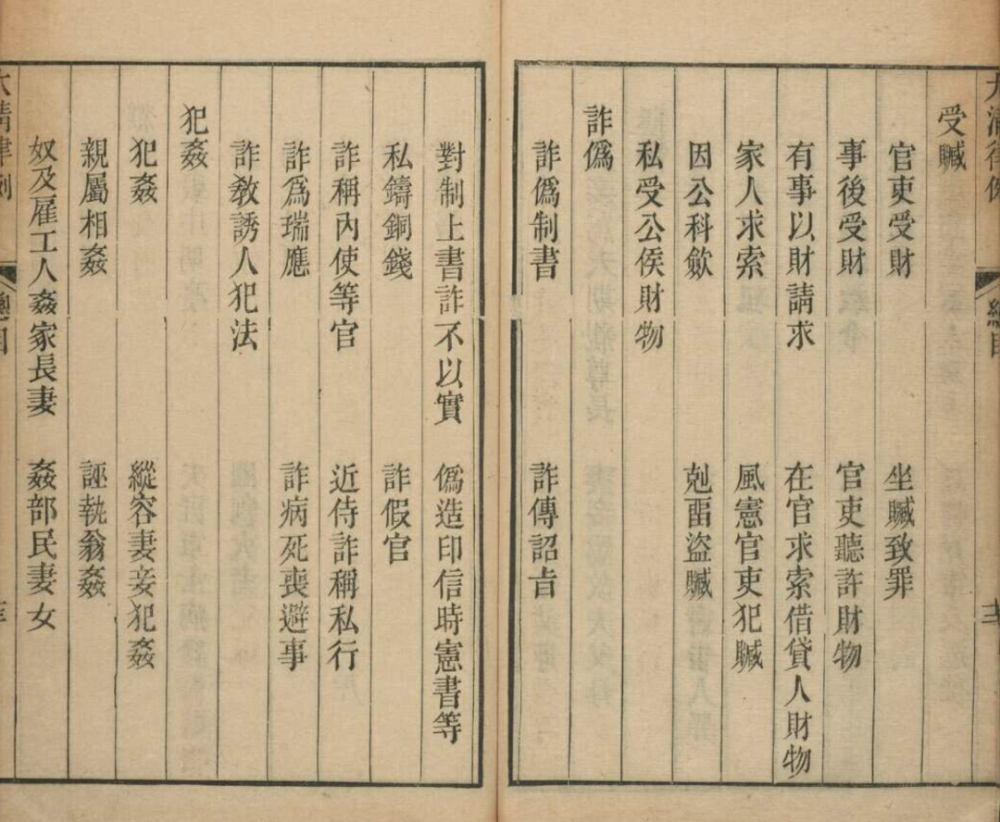 受贓
官吏受財 坐贓致罪
事後受財 官吏聽許財物
有事以財請求 在官求索借貸人財物
家人求索 風憲官吏犯贓
因公科斂 剋畱盜贓
私受公侯財物
詐僞
詐僞制書 詐傳詔旨
對制上書詐不以實 僞造印信時憲書等
私鑄銅錢 詐假官
詐稱內使等官 近侍詐稱私行
詐爲瑞應 詐病死喪避事
詐教誘人犯法
犯姦
犯姦 縱容妻妾犯姦
親屬相姦 誣執翁姦
奴及雇工人姦家長妻 姦部民妻女
大清律例 總目